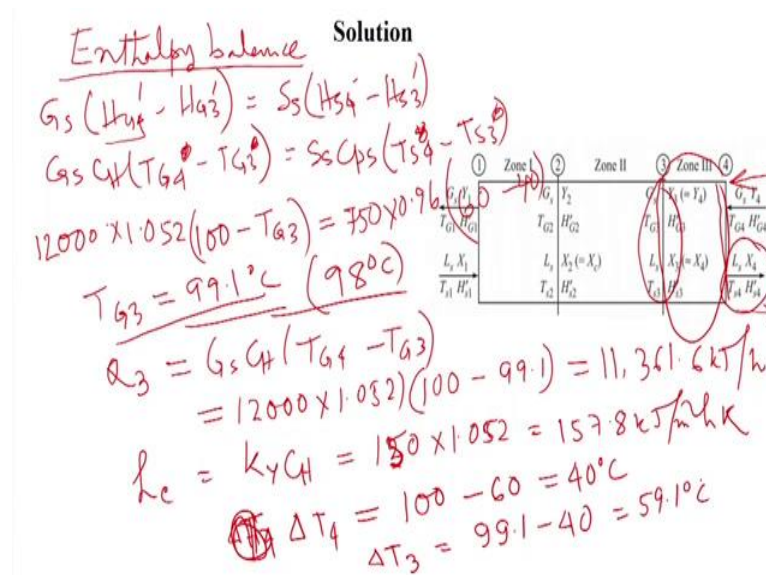 Solution
Enthalpy balance
Gs (HG4' - HG3') = Ss (HS4' - HS3')
Gs CH (TG4 - TG3) = Ss Cps (TS4 - TS3)
12000 × 1.052 (100 - TG3) = 750 × 0.96 (60 - 40)
TG3 = 99.1°C (98°C)
Q3 = Gs CH (TG4 - TG3)
= 12000 × 1.052) (100 - 99.1) = 11,361.6 kJ/h
hc = kY CH = 150 × 1.052 = 157.8 kJ/m²hK
ΔT4 = 100 - 60 = 40°C
ΔT3 = 99.1 - 40 = 59.1°C
1 Zone I 2 Zone II 3 Zone III 4
Gs Y1 Gs Y2 Gs Y3 (= Y4) Gs Y4
TG1 H'G1 TG2 H'G2 TG3 H'G3 TG4 H'G4
Ls X1 Ls X2 (= Xc) Ls X3 (= X4) Ls X4
Ts1 H's1 Ts2 H's2 Ts3 H's3 Ts4 H's4